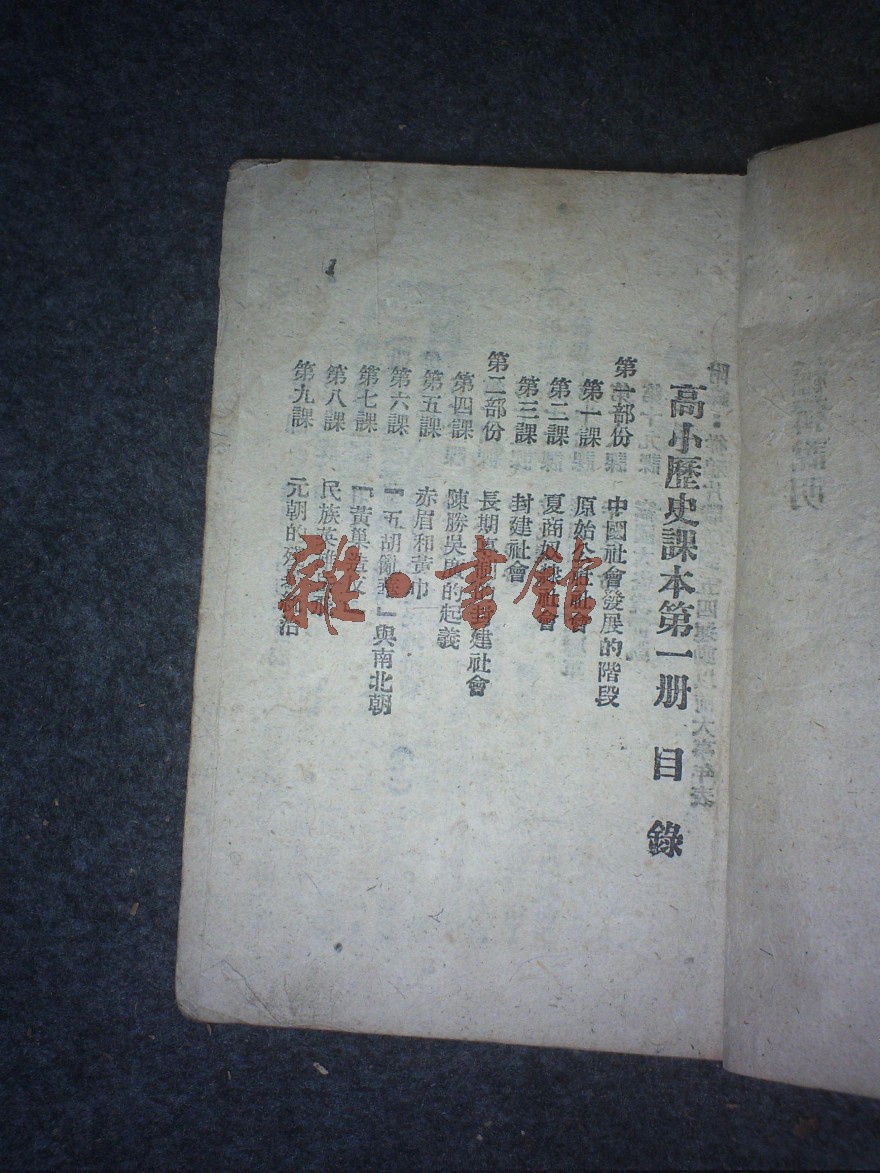 高小歷史課本第一册　目錄
第一部份　中國社會發展的階段
第一課　原始公社社會
第二課　夏商奴隸社會
第三課　封建社會
第二部份　長期專制的封建社會
第四課　陳勝吳廣的起義
第五課　赤眉和黃巾
第六課　『五胡亂華』與南北朝
第七課　『黃巢
第八課　民族英雄
第九課　元朝的殘　統治
雜·書館